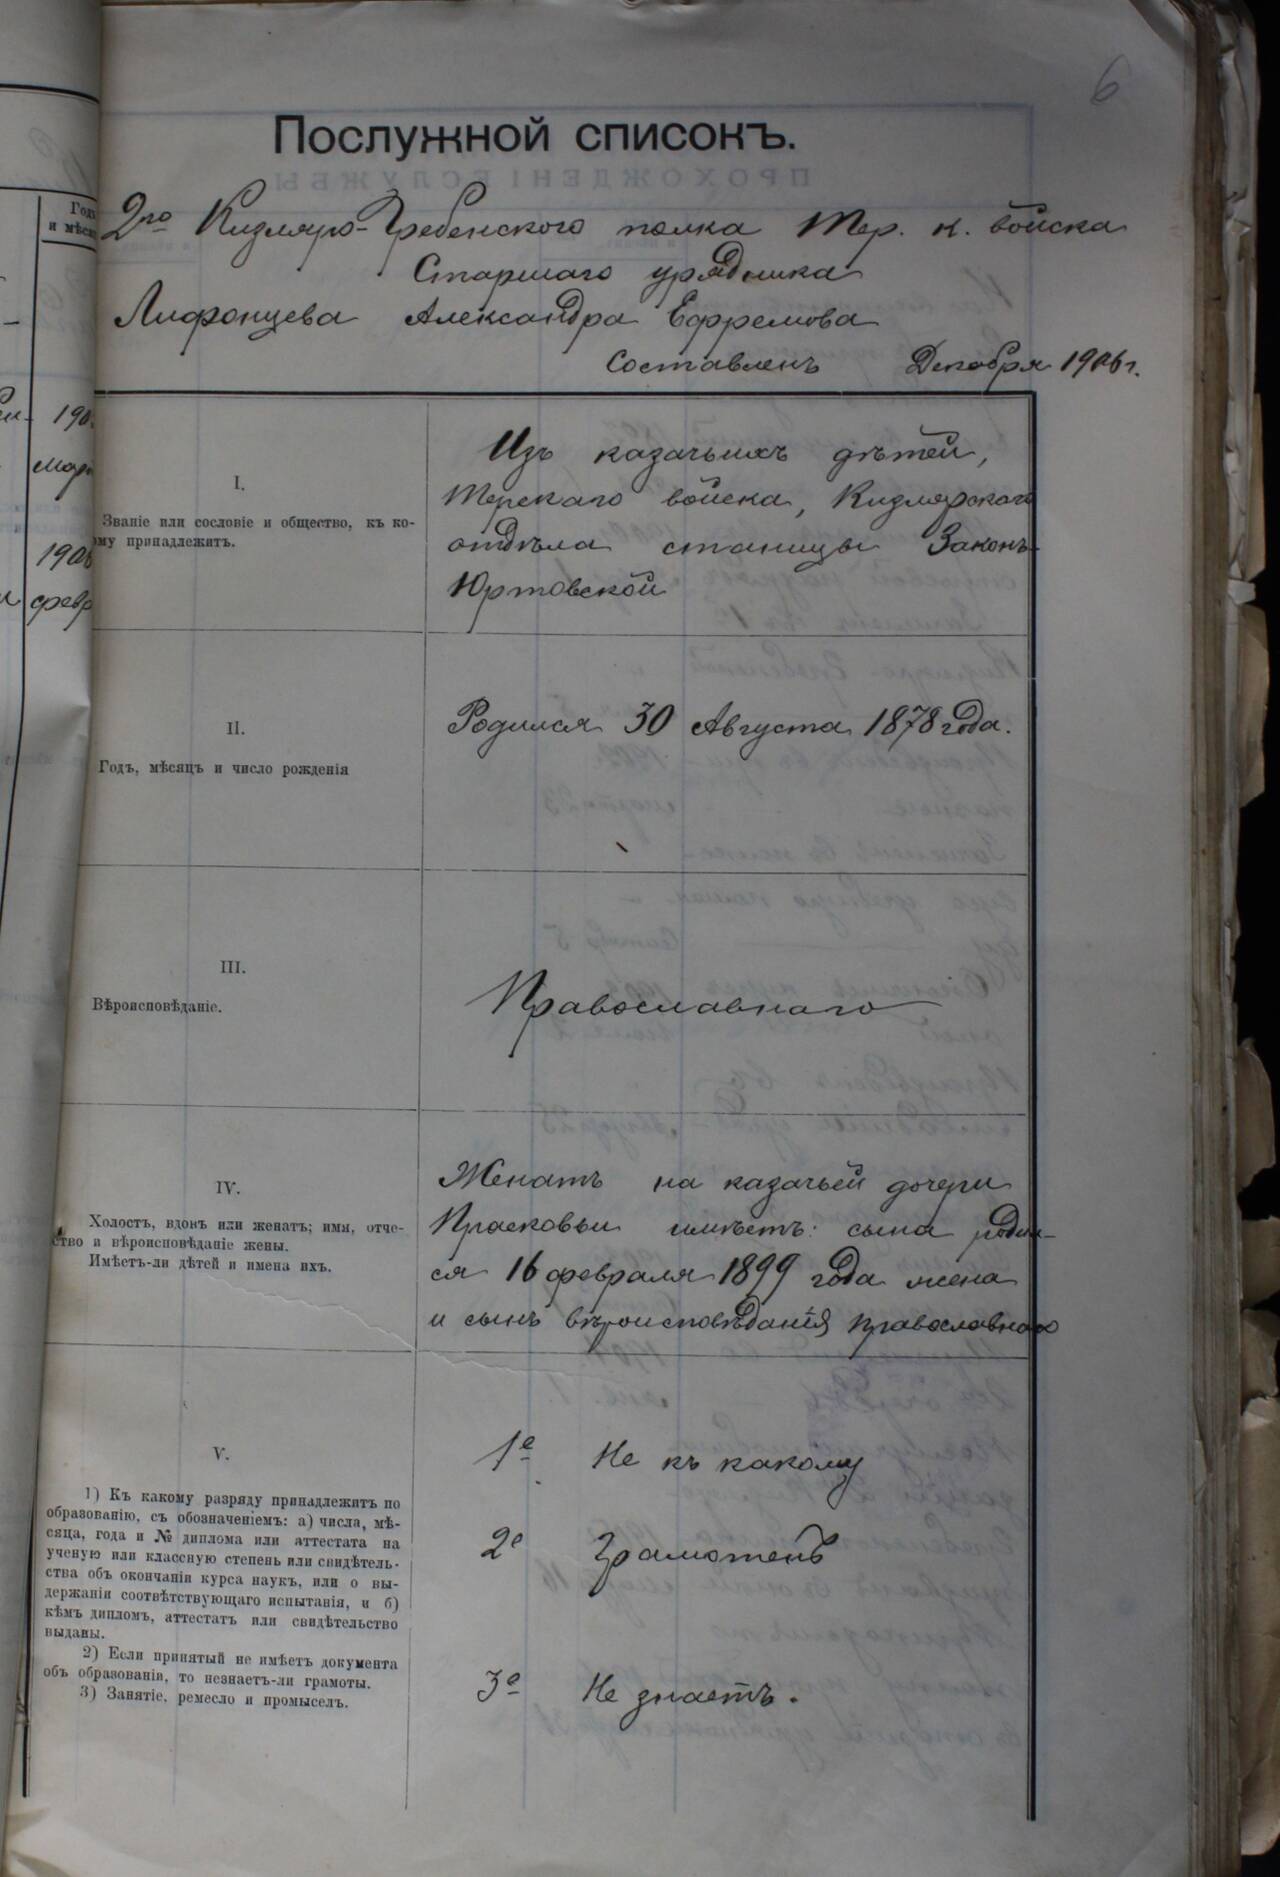 6
Послужной списокъ.
2го Кизляро-Гребенского полка Тер. к. войска
Старшаго урядника
Лифонцева Александра Ефремова
Составленъ Декабря 1906 г.
I.
Званіе или сословіе и общество, къ ко-
ому принадлежитъ.
Изъ казачьихъ дѣтей,
Терскаго войска, Кизлярскаго
отдѣла станицы Законъ-
Юртовской
II.
Годъ, мѣсяцъ и число рожденія
Родился 30 Августа 1878 года.
III.
Вѣроисповѣданіе.
Православнаго
IV.
Холостъ, вдовъ или женатъ; имя, отче-
ство и вѣроисповѣданіе жены.
Имѣетъ-ли дѣтей и имена ихъ.
Женатъ на казачьей дочери
Прасковьи имѣетъ сына родил-
ся 16 февраля 1899 года жена
и сынъ вѣроисповѣданія православнаго
V.
1) Къ какому разряду принадлежитъ по
образованію, съ обозначеніемъ: а) числа, мѣ-
сяца, года и № диплома или аттестата на
ученую или классную степень или свидѣтель-
ства объ окончаніи курса наукъ, или о вы-
держаніи соотвѣтствующаго испытанія, и б)
кѣмъ дипломъ, аттестатъ или свидѣтельство
выданы.
2) Если принятый не имѣетъ документа
объ образованіи, то незнаетъ-ли грамоты.
3) Занятіе, ремесло и промыселъ.
1е Не къ какому
2е Грамотенъ
3е Не знаетъ.
Годъ
и мѣся
190
март
1906
февр